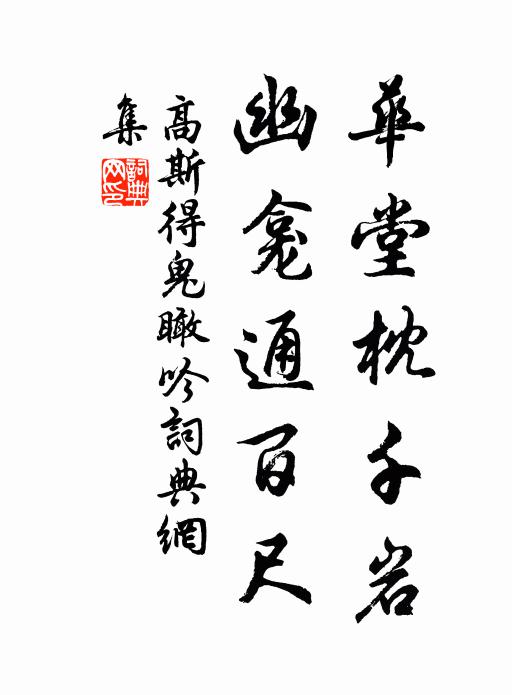 華堂枕千岩
幽龛通百尺
高斯得鬼瞰吟詞典網
集
詞典网印